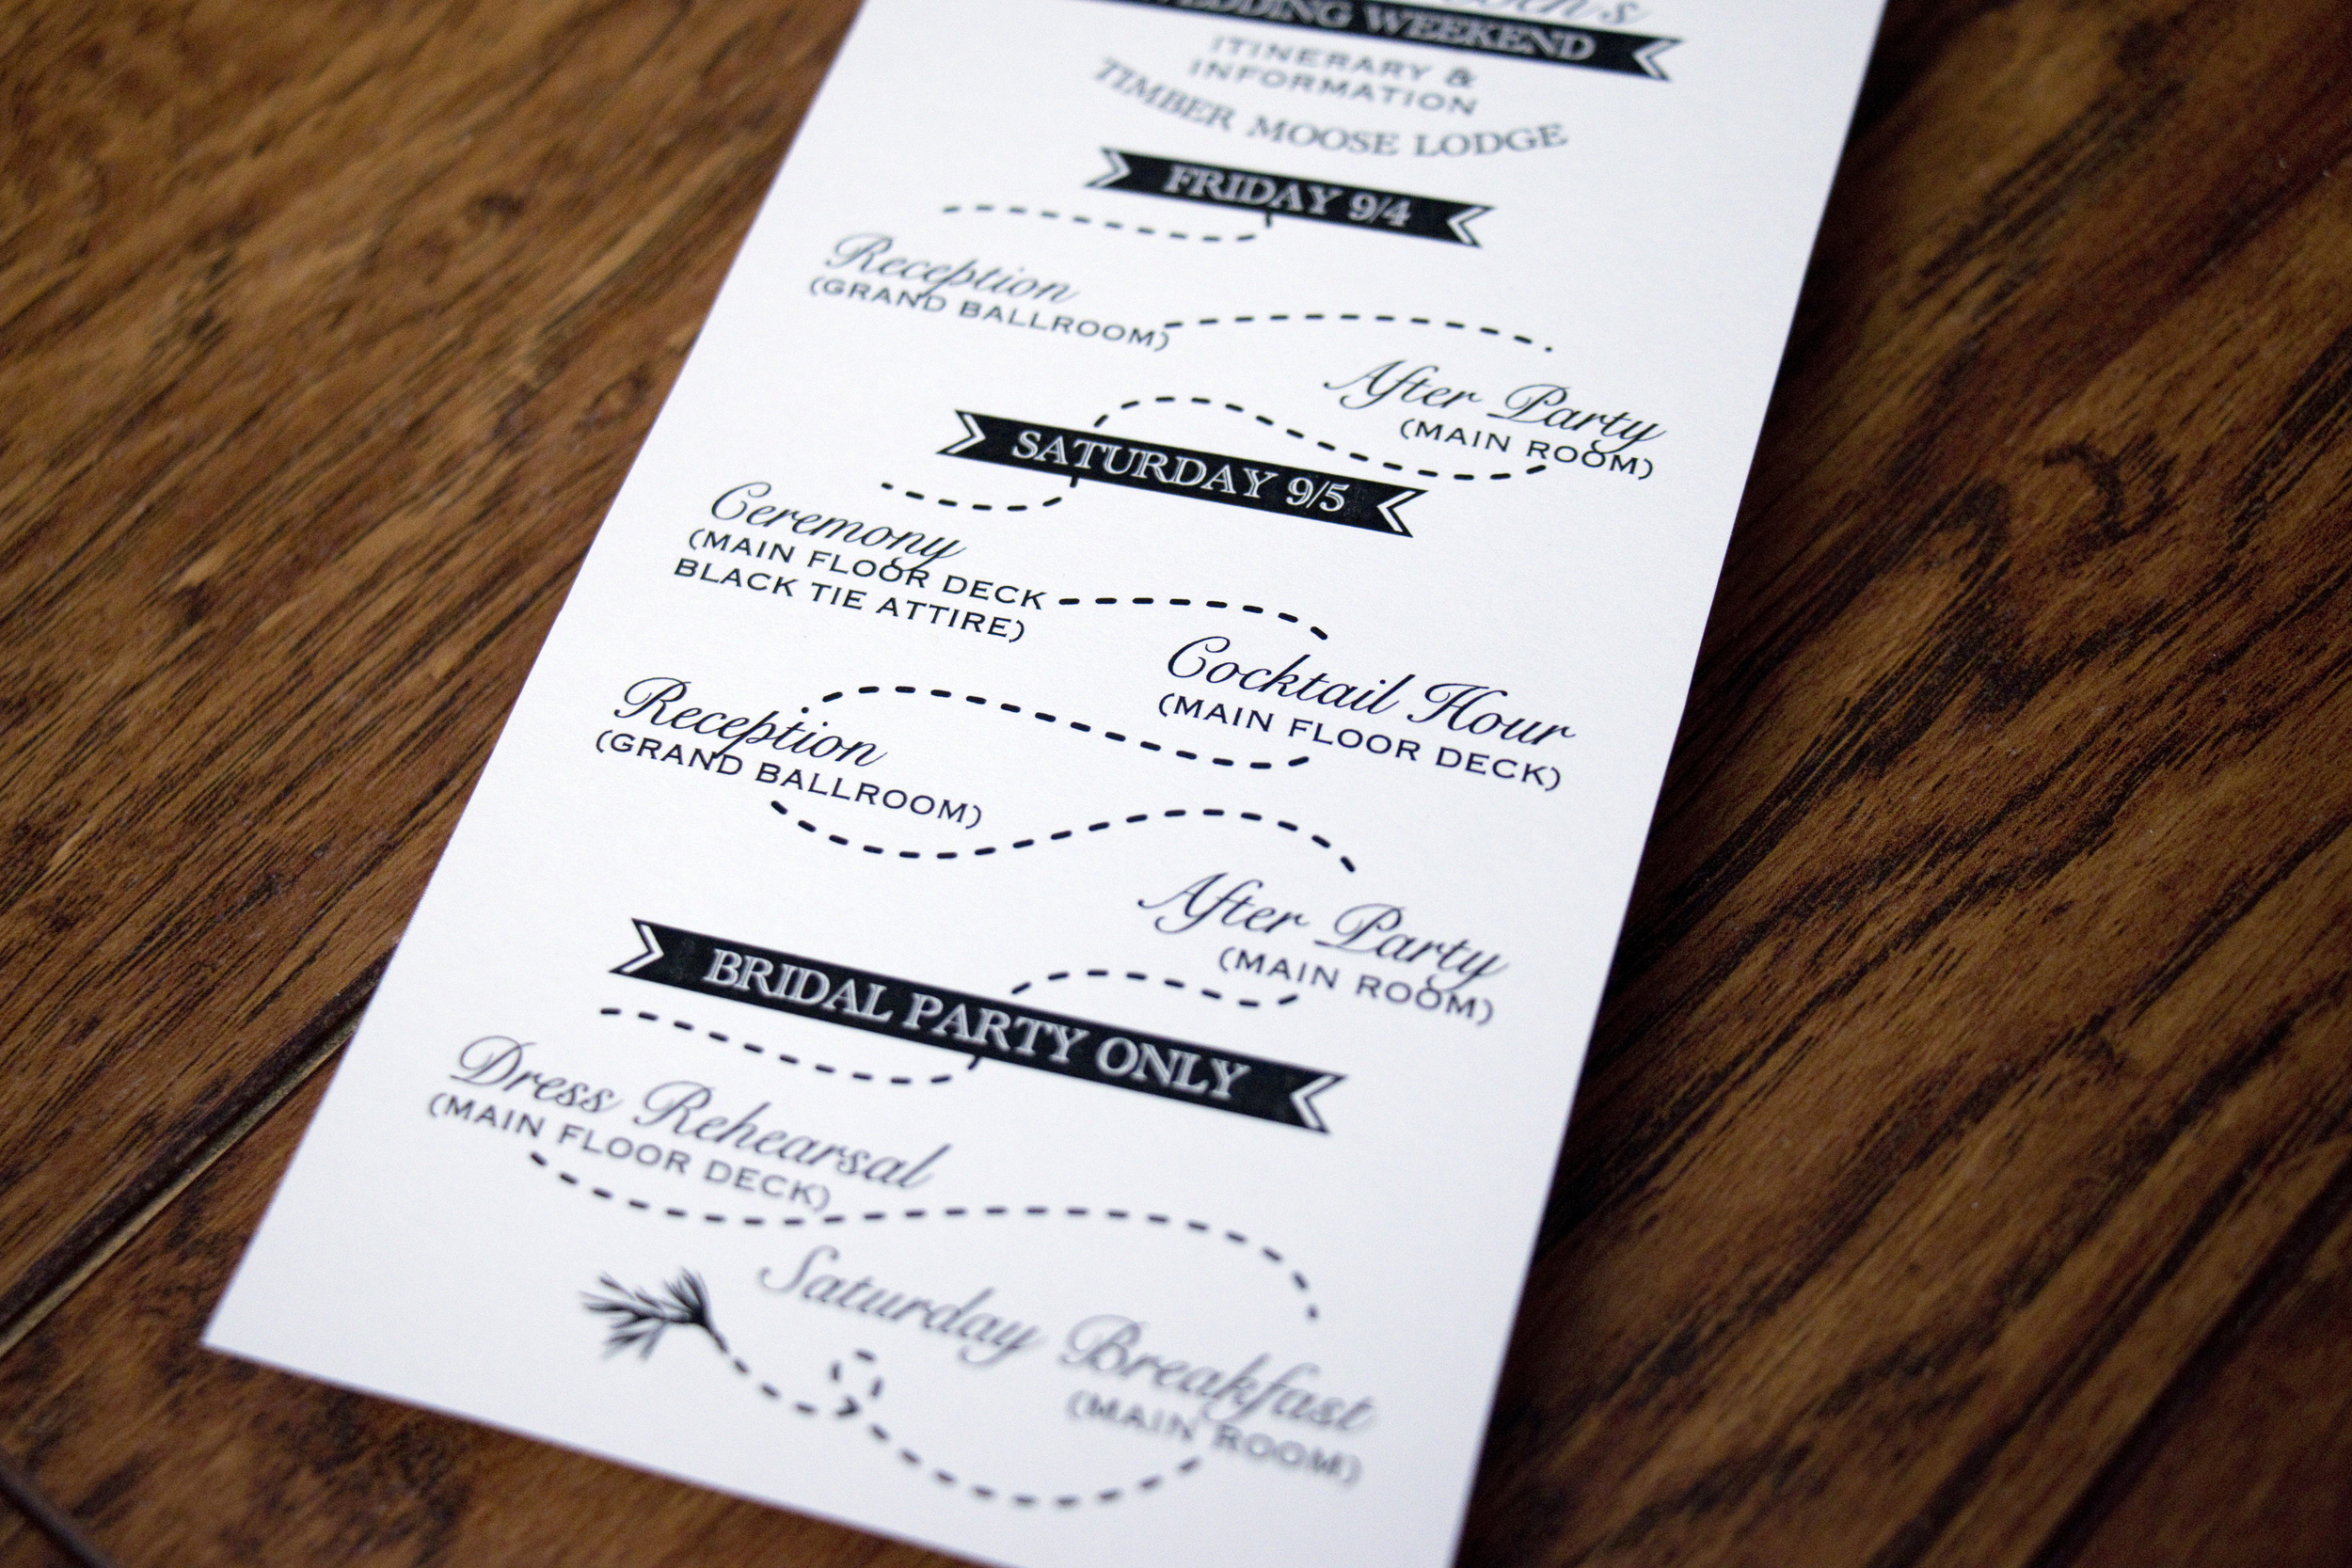 WEDDING WEEKEND
ITINERARY &
INFORMATION
TIMBER MOOSE LODGE
FRIDAY 9/4
Reception
(GRAND BALLROOM)
After Party
(MAIN ROOM)
SATURDAY 9/5
Ceremony
(MAIN FLOOR DECK
BLACK TIE ATTIRE)
Cocktail Hour
(MAIN FLOOR DECK)
Reception
(GRAND BALLROOM)
After Party
(MAIN ROOM)
BRIDAL PARTY ONLY
Dress Rehearsal
(MAIN FLOOR DECK)
Saturday Breakfast
(MAIN ROOM)